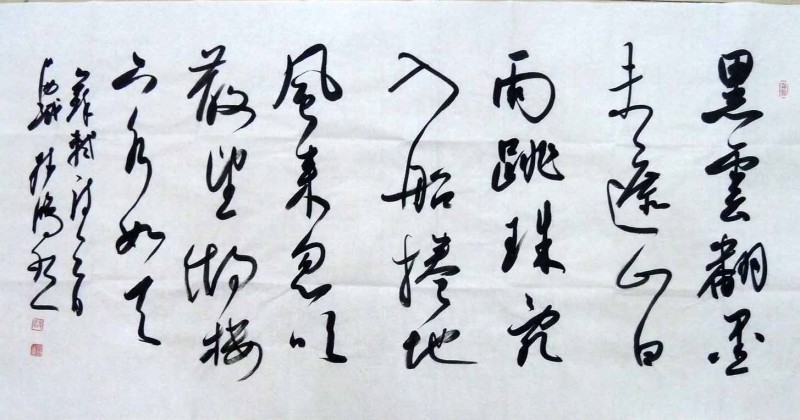 黑雲翻墨
未遮山白
雨跳珠亂
入船捲地
風来忽吹
散望湖樓
下水如天
蘇軾詩